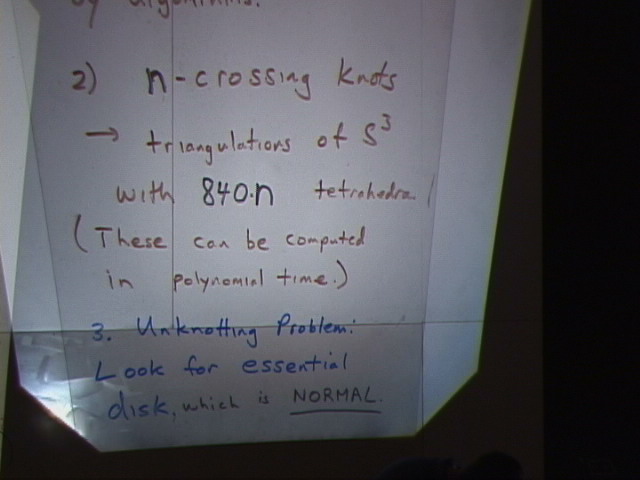 by algorithms.
2) n-crossing knots
→ triangulations of S³
with 840·n tetrahedra.
(These can be computed
in polynomial time.)
3. Unknotting Problem:
Look for essential
disk, which is NORMAL.